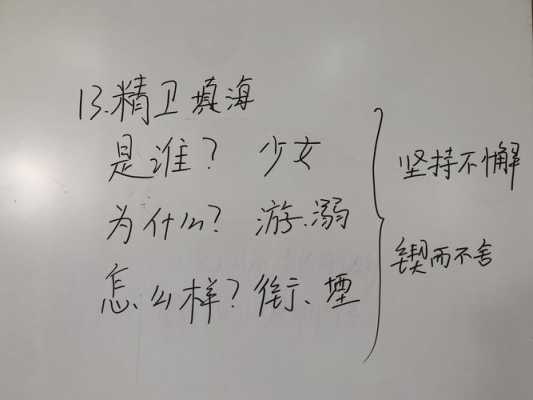 13.精卫填海
是谁？ 少女
为什么？ 游、溺
怎么样？衔、堙
坚持不懈
锲而不舍